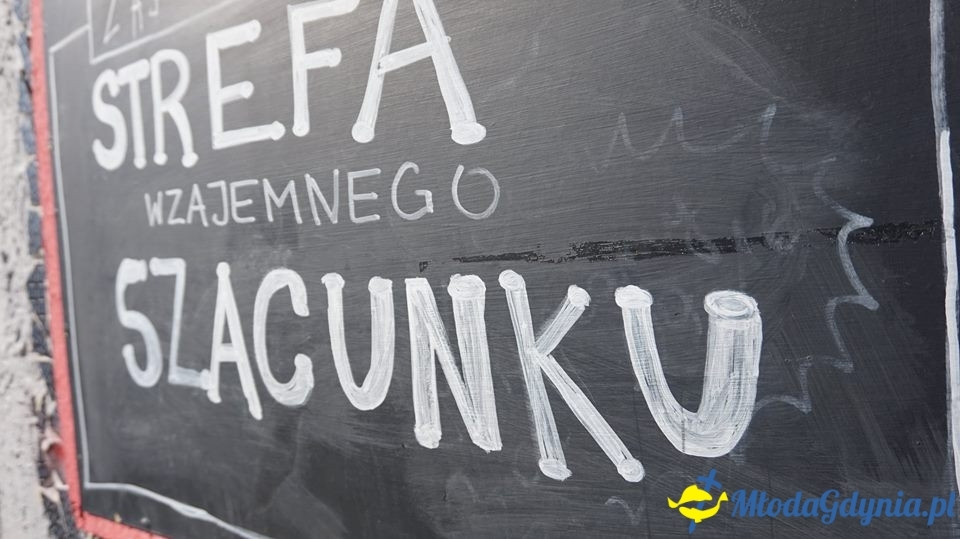 STREFA
WZAJEMNEGO
SZACUNKU
MłodaGdynia.pl